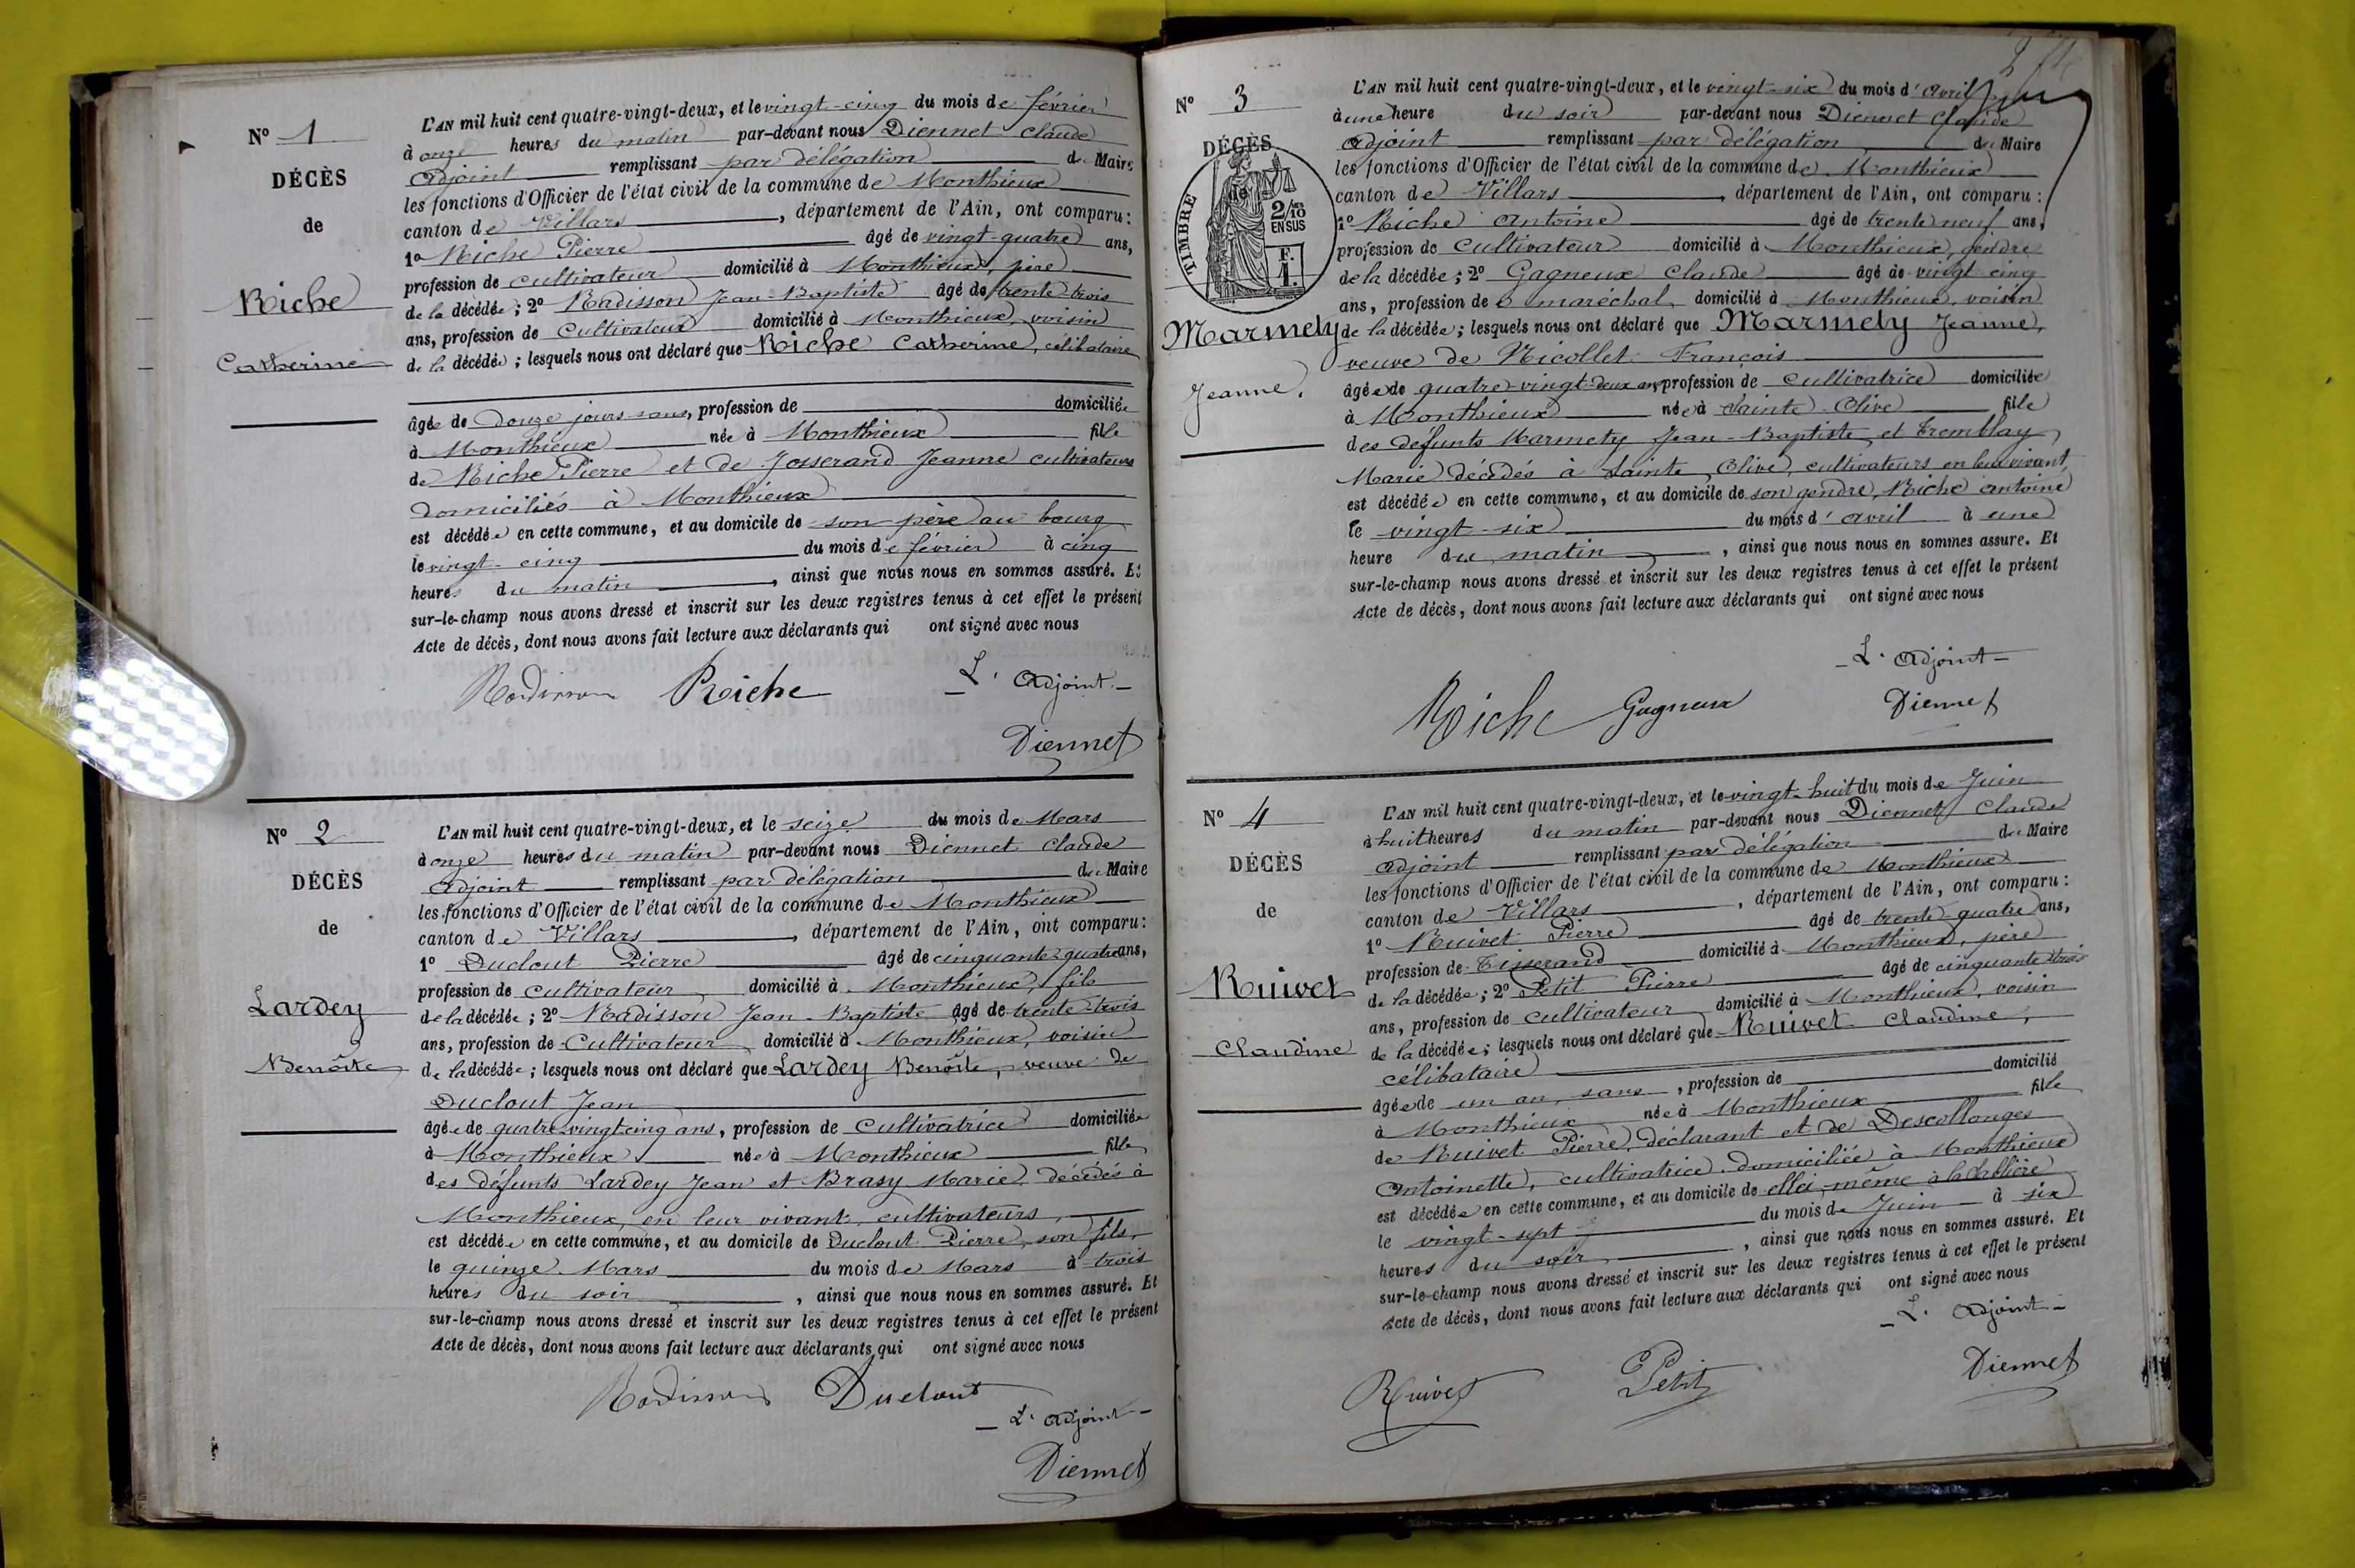 N° 1
DÉCÈS
de
Riche
Catherine
L'AN mil huit cent quatre-vingt-deux, et le vingt-cinq du mois de février
à onze heures du matin par-devant nous Diennet Claude
Adjoint remplissant par délégation du Maire
les fonctions d'Officier de l'état civil de la commune de Monthieux
canton de Villars, département de l'Ain, ont comparu :
1° Riche Pierre âgé de vingt-quatre ans,
profession de cultivateur domicilié à Monthieux, père
de la décédée ; 2° Radisson Jean-Baptiste âgé de trente-trois
ans, profession de Cultivateur domicilié à Monthieux, voisin
de la décédée ; lesquels nous ont déclaré que Riche Catherine, célibataire
âgée de douze jours sans, profession de domiciliée
à Monthieux née à Monthieux fille
de Riche Pierre et de Josserand Jeanne cultivateurs
domiciliés à Monthieux
est décédée en cette commune, et au domicile de son père au bourg
le vingt-cinq du mois de février à cinq
heures du matin, ainsi que nous nous en sommes assuré. Et
sur-le-champ nous avons dressé et inscrit sur les deux registres tenus à cet effet le présent
Acte de décès, dont nous avons fait lecture aux déclarants qui ont signé avec nous
Radisson Riche L'Adjoint
Diennet
N° 2
DÉCÈS
de
Lardey
Benoîte
L'AN mil huit cent quatre-vingt-deux, et le seize du mois de Mars
à onze heures du matin par-devant nous Diennet Claude
Adjoint remplissant par délégation du Maire
les fonctions d'Officier de l'état civil de la commune de Monthieux
canton de Villars, département de l'Ain, ont comparu :
1° Duclout Pierre âgé de cinquante-quatre ans,
profession de cultivateur domicilié à Monthieux, fils
de la décédée ; 2° Radisson Jean-Baptiste âgé de trente-trois
ans, profession de Cultivateur domicilié à Monthieux, voisin
de la décédée ; lesquels nous ont déclaré que Lardey Benoîte, veuve de
Duclout Jean
âgée de quatre-vingt cinq ans, profession de Cultivatrice domiciliée
à Monthieux née à Monthieux fille
des défunts Lardey Jean et Brasy Marie décédés à
Monthieux, en leur vivant cultivateurs,
est décédée en cette commune, et au domicile de Duclout Pierre, son fils,
le quinze Mars du mois de Mars à trois
heures du soir, ainsi que nous nous en sommes assuré. Et
sur-le-champ nous avons dressé et inscrit sur les deux registres tenus à cet effet le présent
Acte de décès, dont nous avons fait lecture aux déclarants qui ont signé avec nous
Radisson Duclout
L'Adjoint
Diennet
N° 3
DÉCÈS
de
TIMBRE
2/10 EN SUS
F. 1.
Marmety
Jeanne.
L'AN mil huit cent quatre-vingt-deux, et le vingt-six du mois d'avril
à une heure du soir par-devant nous Diennet Claude
Adjoint remplissant par délégation du Maire
les fonctions d'Officier de l'état civil de la commune de Monthieux
canton de Villars, département de l'Ain, ont comparu :
1° Riche Antoine âgé de trente neuf ans,
profession de Cultivateur domicilié à Monthieux, gendre
de la décédée ; 2° Gagneux Claude âgé de vingt cinq
ans, profession de maréchal domicilié à Monthieux, voisin
de la décédée ; lesquels nous ont déclaré que Marmety Jeanne,
veuve de Nicollet François
âgée de quatre-vingt-deux ans, profession de Cultivatrice domiciliée
à Monthieux née à Sainte-Olive fille
des défunts Marmety Jean-Baptiste et Tremblay
Marie décédés à Sainte Olive, cultivateurs en leur vivant,
est décédée en cette commune, et au domicile de son gendre, Riche Antoine
le vingt-six du mois d'avril à une
heure du matin, ainsi que nous nous en sommes assuré. Et
sur-le-champ nous avons dressé et inscrit sur les deux registres tenus à cet effet le présent
Acte de décès, dont nous avons fait lecture aux déclarants qui ont signé avec nous
L'Adjoint
Riche Gagneux Diennet
N° 4
DÉCÈS
de
Ruivet
Claudine
L'AN mil huit cent quatre-vingt-deux, et le vingt-huit du mois de Juin
à huit heures du matin par-devant nous Diennet Claude
Adjoint remplissant par délégation du Maire
les fonctions d'Officier de l'état civil de la commune de Monthieux
canton de Villars, département de l'Ain, ont comparu :
1° Ruivet Pierre âgé de trente-quatre ans,
profession de Tisserand domicilié à Monthieux, père
de la décédée ; 2° Petit Pierre âgé de cinquante trois
ans, profession de cultivateur domicilié à Monthieux, voisin
de la décédée ; lesquels nous ont déclaré que Ruivet Claudine,
célibataire
âgée de un an, sans, profession de domicilié
à Monthieux née à Monthieux fille
de Ruivet Pierre, déclarant et de Descollonges
Antoinette, cultivatrice domiciliée à Monthieux
est décédée en cette commune, et au domicile de elle-même à la
le vingt-sept du mois de Juin à six
heures du soir, ainsi que nous nous en sommes assuré. Et
sur-le-champ nous avons dressé et inscrit sur les deux registres tenus à cet effet le présent
Acte de décès, dont nous avons fait lecture aux déclarants qui ont signé avec nous
L'Adjoint
Ruivet Petit Diennet